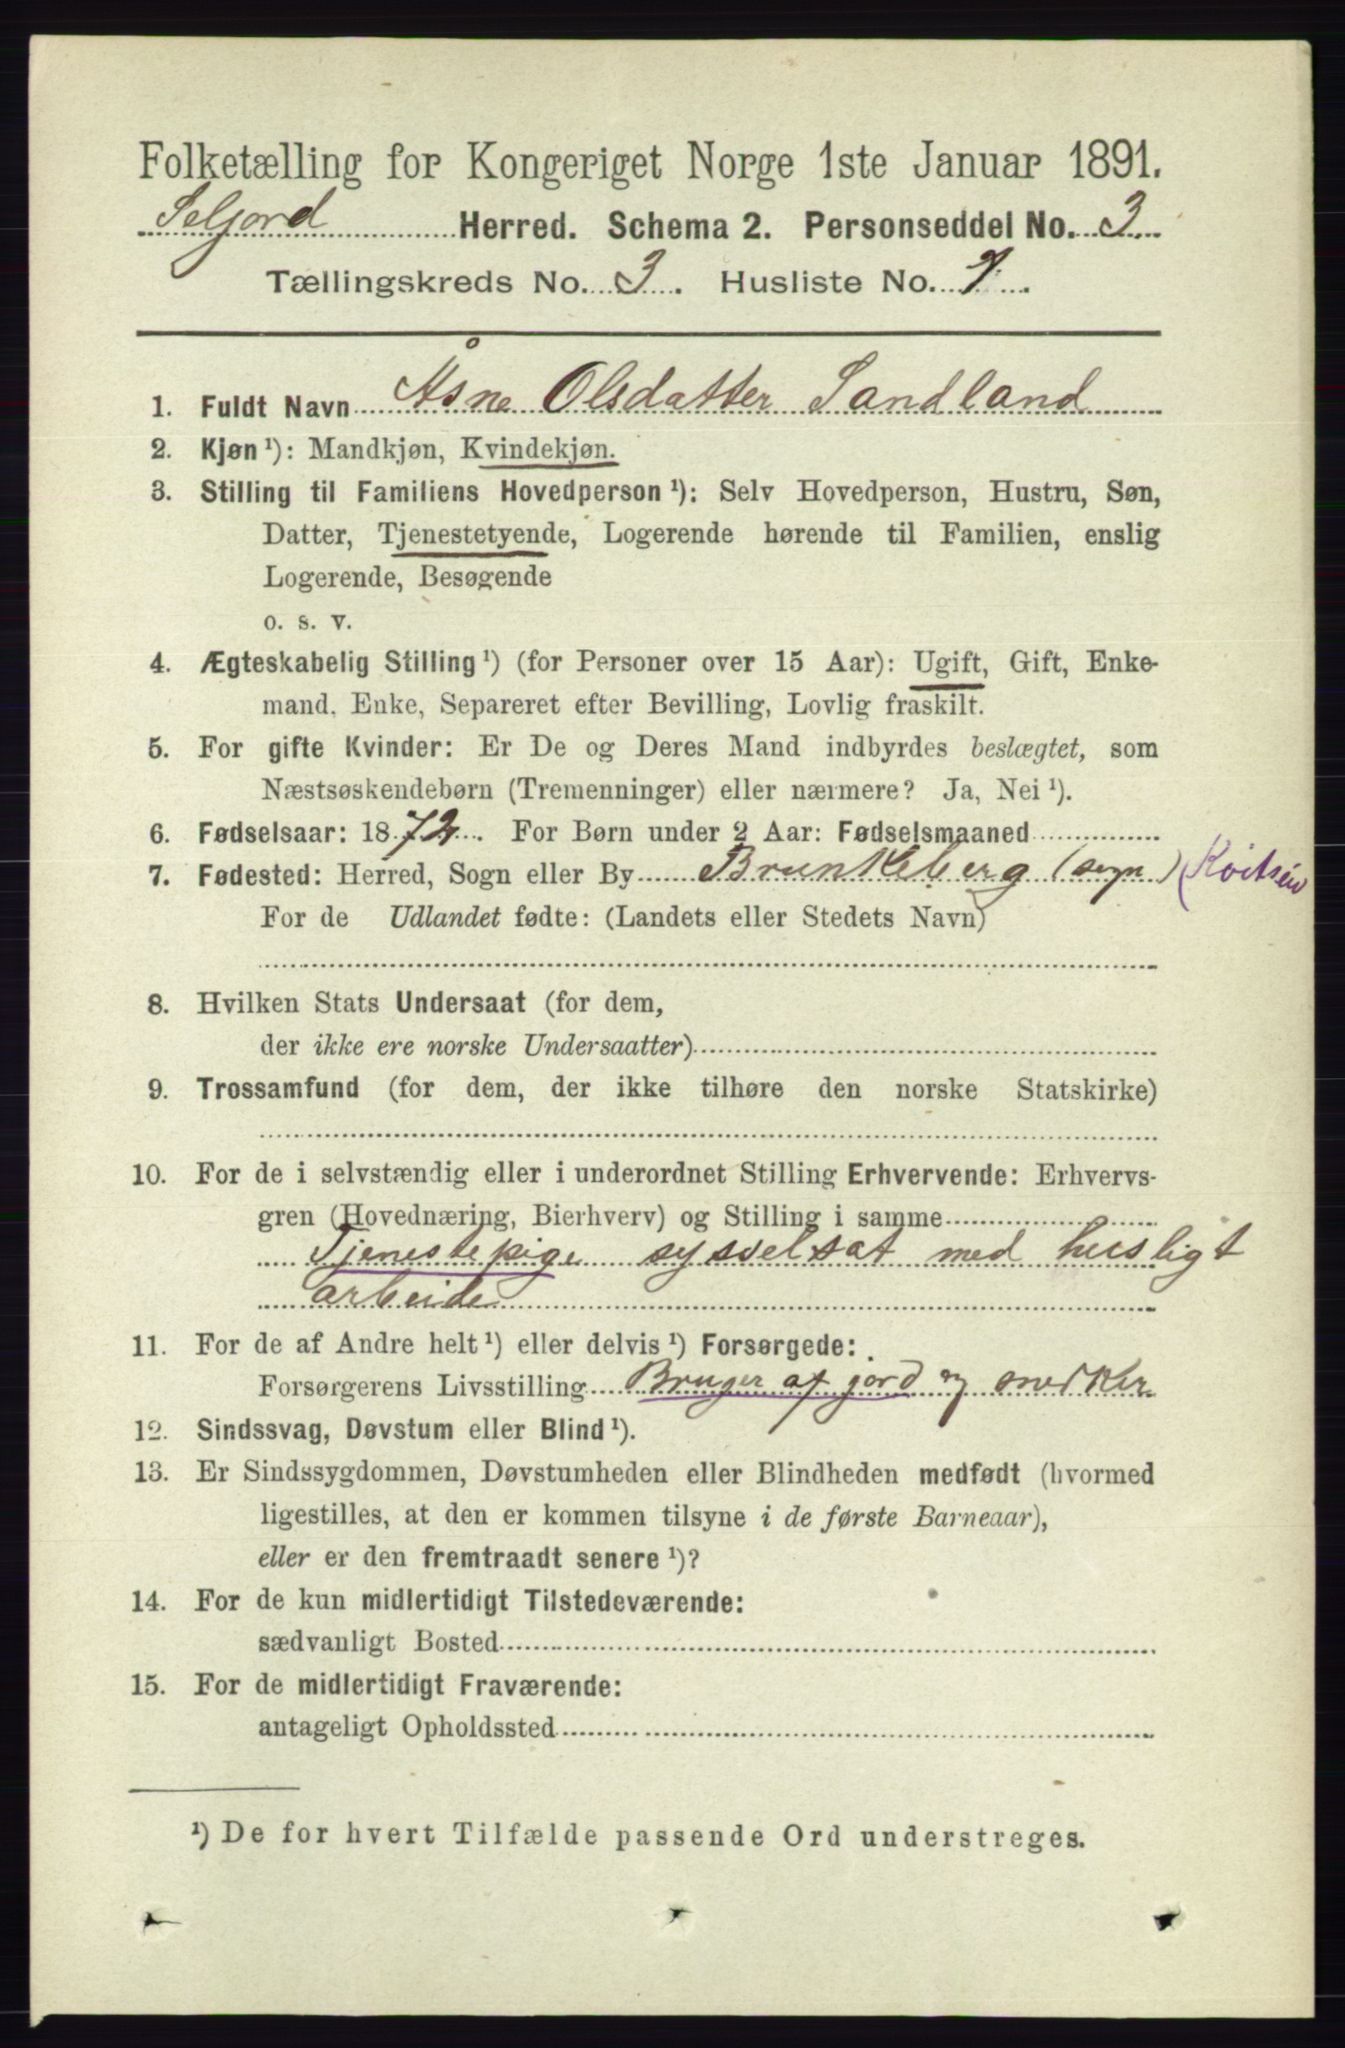 Folketælling for Kongeriget Norge 1ste Januar 1891.
Seljord Herred. Schema 2. Personseddel No. 3
Tællingskreds No. 3. Husliste No. 1.
1. Fuldt Navn Åsne Olsdatter Sandland
2. Kjøn ¹): Mandkjøn, Kvindekjøn.
3. Stilling til Familiens Hovedperson ¹): Selv Hovedperson, Hustru, Søn,
Datter, Tjenestetyende, Logerende hørende til Familien, enslig
Logerende, Besøgende
o. s. v.
4. Ægteskabelig Stilling ¹) (for Personer over 15 Aar): Ugift, Gift, Enke-
mand, Enke, Separeret efter Bevilling, Lovlig fraskilt.
5. For gifte Kvinder: Er De og Deres Mand indbyrdes beslægtet, som
Næstsøskendebørn (Tremenninger) eller nærmere? Ja, Nei ¹).
6. Fødselsaar: 1872. For Børn under 2 Aar: Fødselsmaaned
7. Fødested: Herred, Sogn eller By Brunkeberg (sogn) (Kvitseid
For de Udlandet fødte: (Landets eller Stedets Navn)
8. Hvilken Stats Undersaat (for dem,
der ikke ere norske Undersaatter)
9. Trossamfund (for dem, der ikke tilhøre den norske Statskirke)
10. For de i selvstændig eller i underordnet Stilling Erhvervende: Erhvervs-
gren (Hovednæring, Bierhverv) og Stilling i samme
Tjenestepige sysselsat med husligt
arbeide
11. For de af Andre helt ¹) eller delvis ¹) Forsørgede:
Forsørgerens Livsstilling Bruger af jord og snedker
12. Sindssvag, Døvstum eller Blind ¹).
13. Er Sindssygdommen, Døvstumheden eller Blindheden medfødt (hvormed
ligestilles, at den er kommen tilsyne i de første Barneaar),
eller er den fremtraadt senere ¹)?
14. For de kun midlertidigt Tilstedeværende:
sædvanligt Bosted
15. For de midlertidigt Fraværende:
antageligt Opholdssted
¹) De for hvert Tilfælde passende Ord understreges.